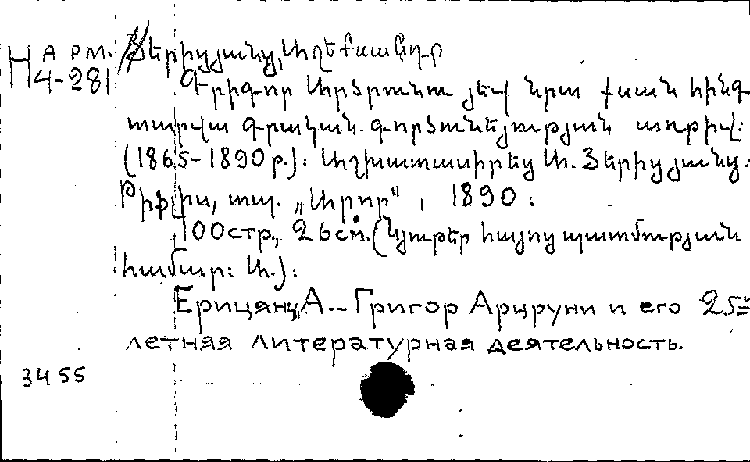 Н АРМ. Երիցյանց, Ալեքսանդր
4-281
Գրիգոր Արծրունա յեվ նրա քսան հինգ
տարվա գրական գործունեյության առթիվ:
(1865-1890 թ.): Աշխատասիրեց Ա. Յերիցյանց.
Թիֆլիս, տպ. „Արոր", 1890:
100стр., 26см. (Նյութեր հայոց պատմության
համար: Ա.):
Ерицянц, А.- Григор Арцруни и его 25-
летняя литературная деятельность.
3455